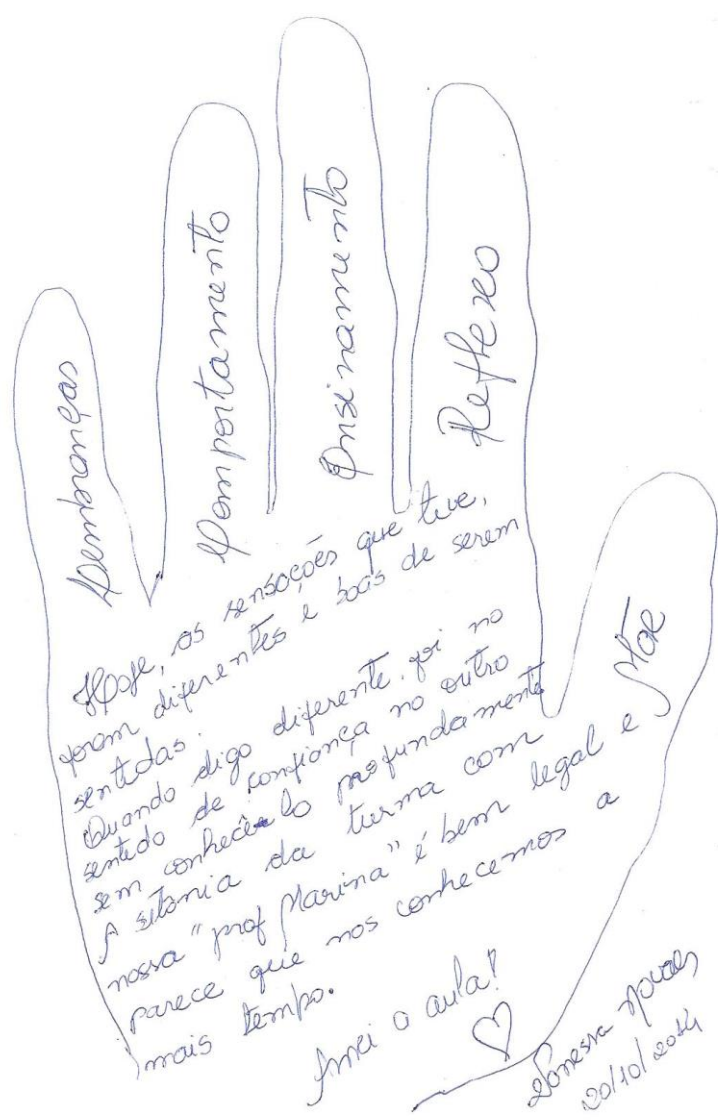 Lembranças
Comportamento
Ensinamento
Reflexo
Mãe
Hoje, as sensações que tive,
foram diferentes e boas de serem
sentidas.
Quando digo diferente, foi no
sentido de confiança no outro
sem conhecê-lo profundamente
A sitonia da turma com
nossa "prof Marina" é bem legal e
parece que nos conhecemos a
mais tempo.
Amei a aula!
Vanessa Novaes
20/10/2014